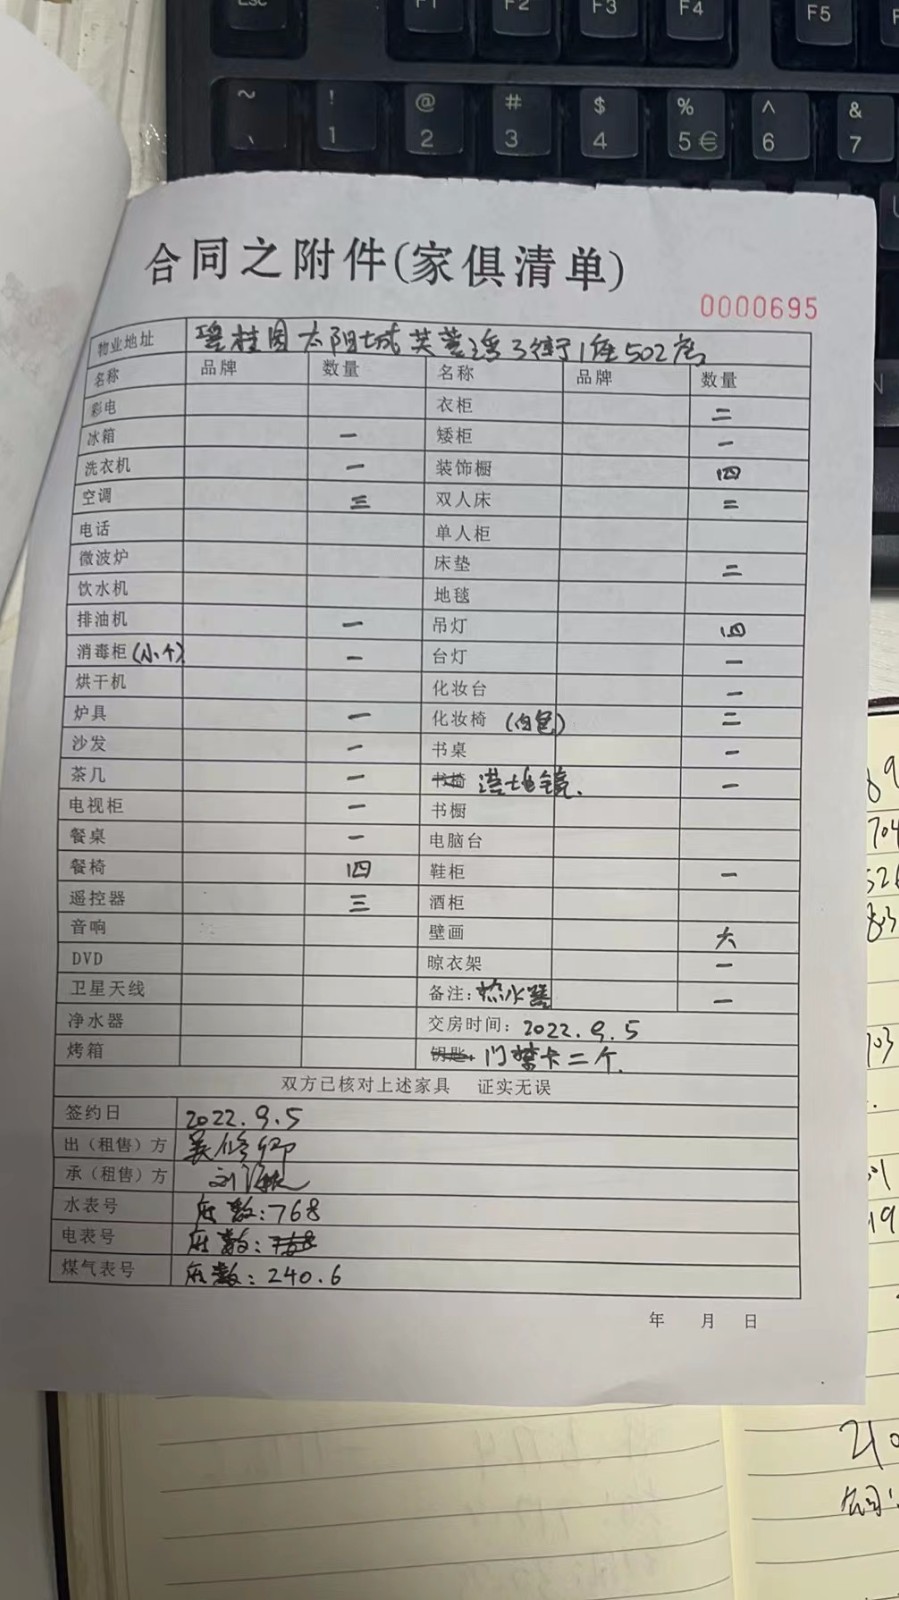 合同之附件(家俱清单)
0000695
物业地址 碧桂园太阳城芙蓉湾3街1座502房
名称 品牌 数量 名称 品牌 数量
彩电 衣柜 二
冰箱 一 矮柜 一
洗衣机 一 装饰橱 四
空调 三 双人床 二
电话 单人柜
微波炉 床垫 二
饮水机 地毯
排油机 一 吊灯 四
消毒柜(小个) 一 台灯 一
烘干机 化妆台 一
炉具 一 化妆椅 (白色) 二
沙发 一 书桌 一
茶几 一 书椅 落地镜. 一
电视柜 一 书橱
餐桌 一 电脑台
餐椅 四 鞋柜 一
遥控器 三 酒柜
音响 壁画 六
DVD 晾衣架 一
卫星天线 备注:热水器 一
净水器 交房时间:2022.9.5
烤箱 钥匙: 门禁卡二个.
双方已核对上述家具 证实无误
签约日 2022.9.5
出(租售)方
承(租售)方
水表号 底数:768
电表号 底数:768
煤气表号 底数:240.6
年 月 日
Esc F1 F2 F3 F4 F5
~ ! @ # $ % ^ &
1 2 3 4 5€ 6 7